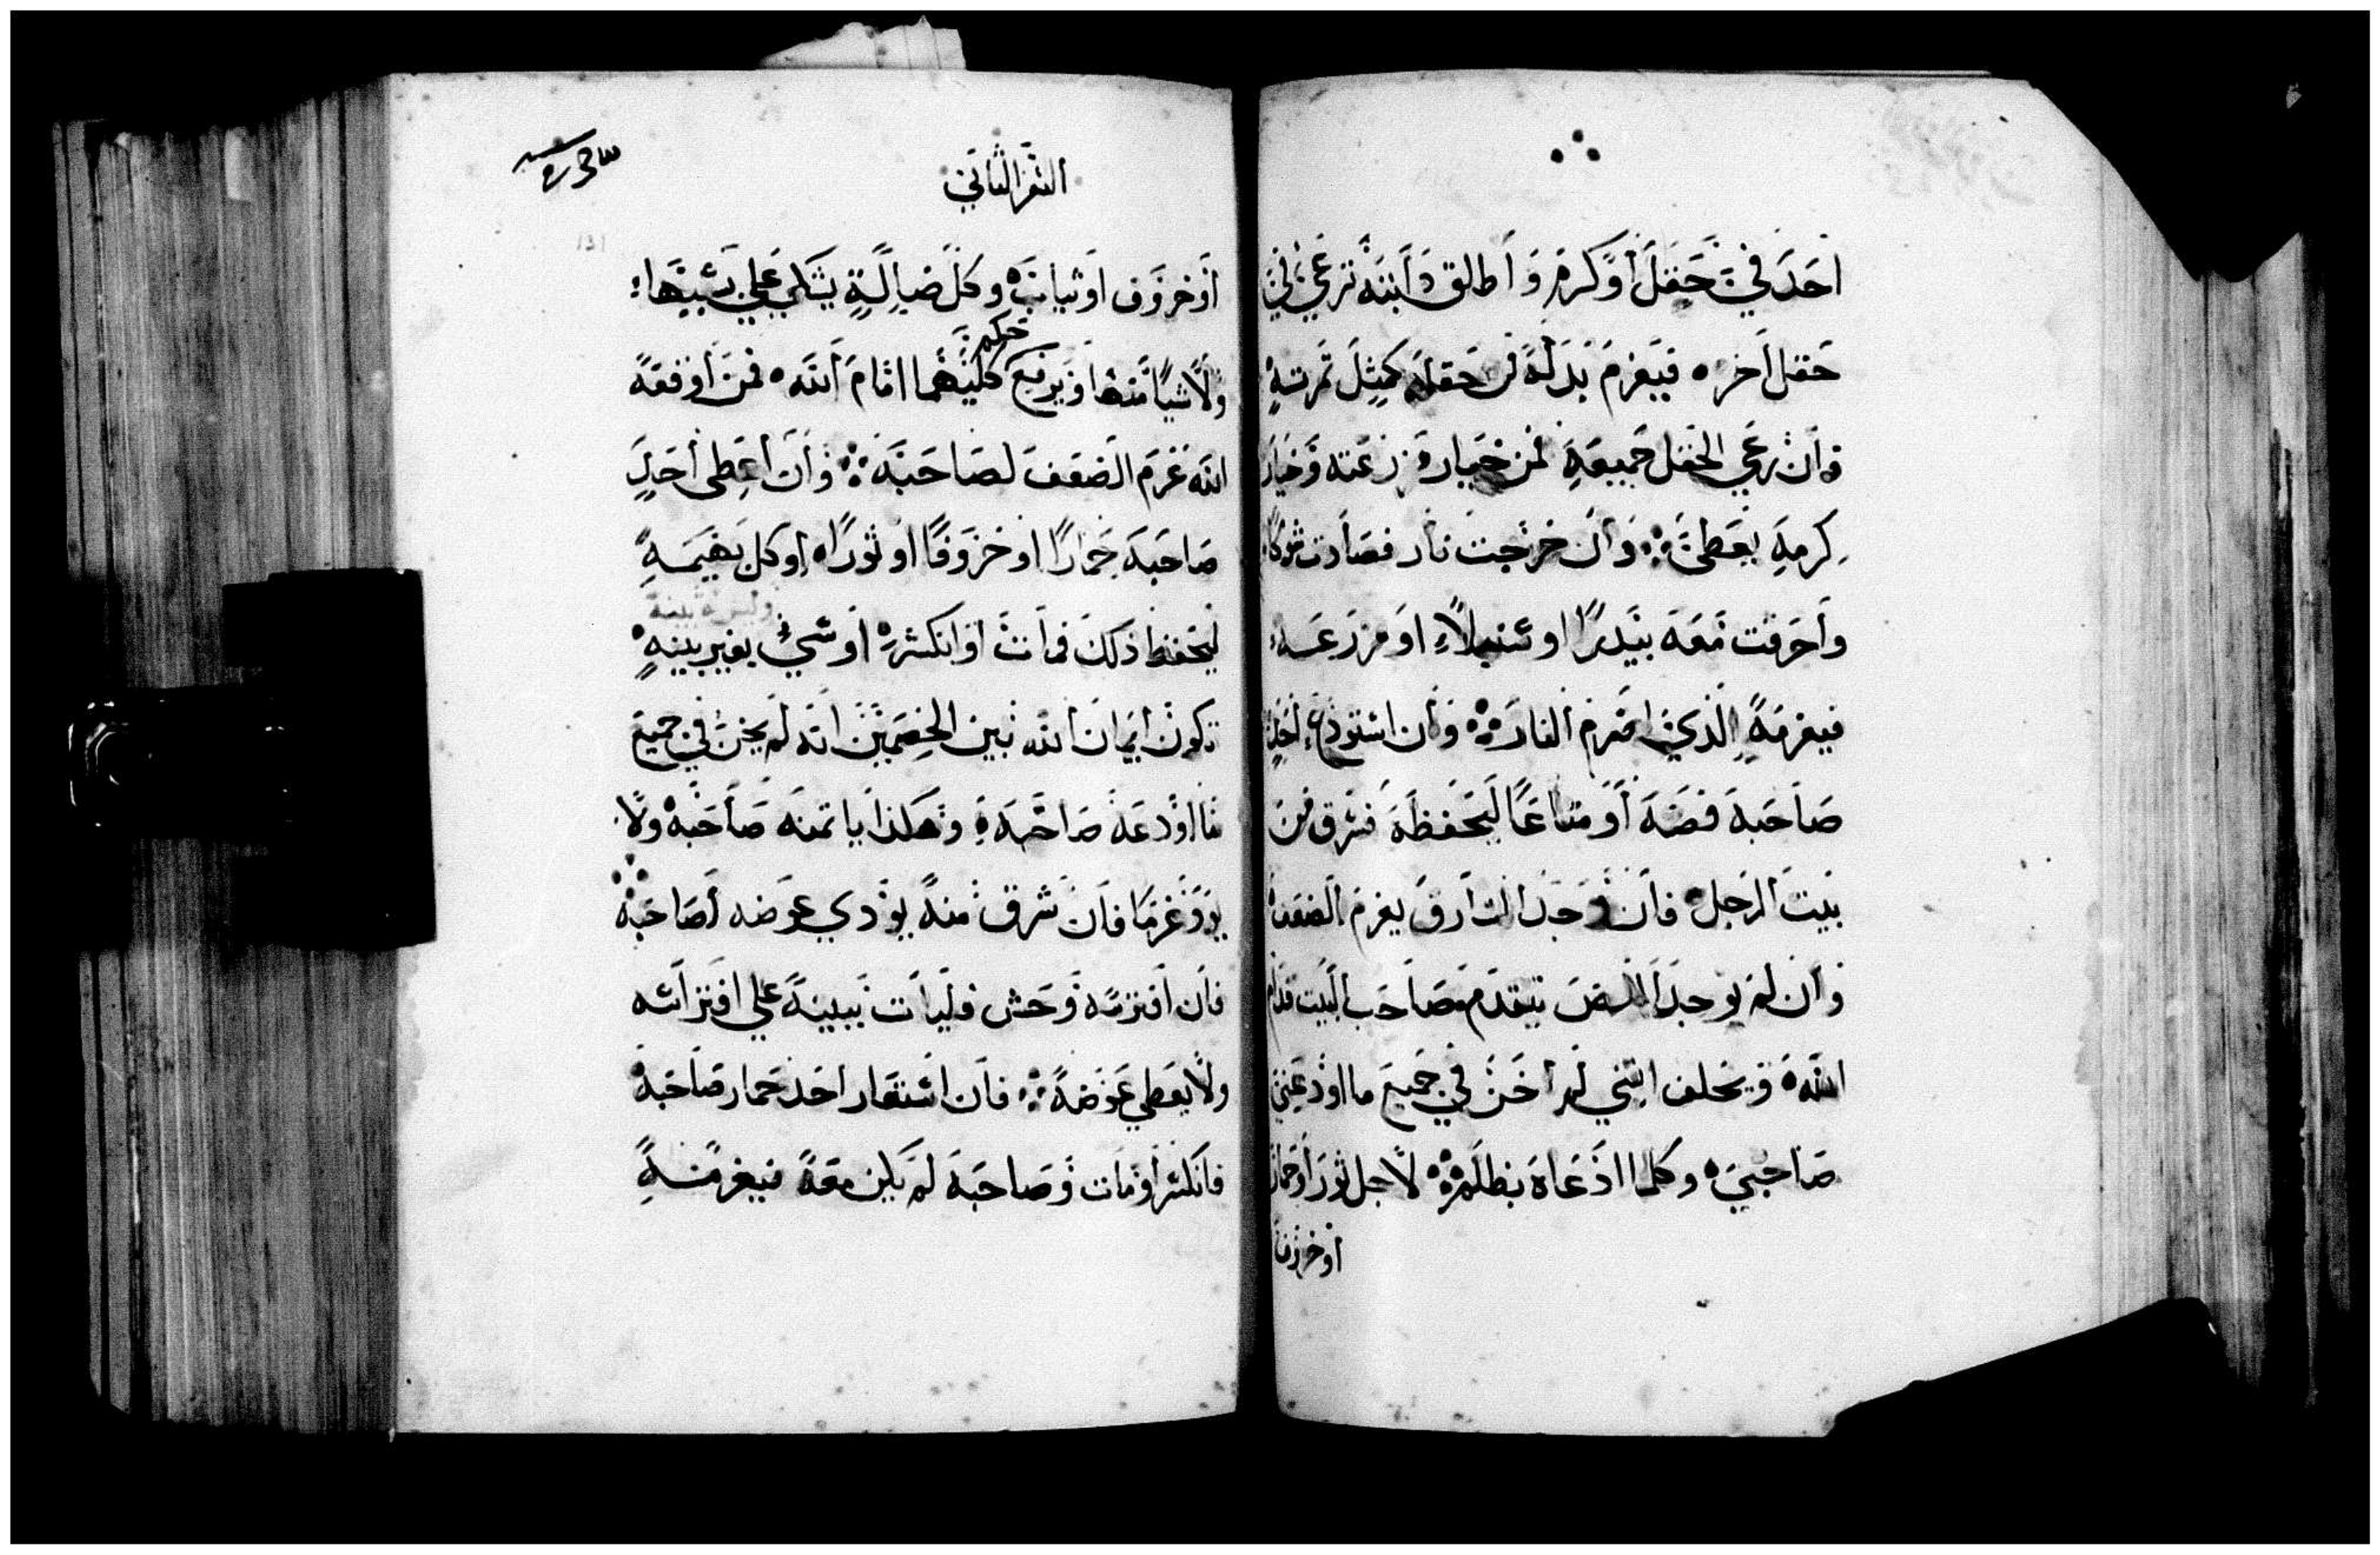 احد في حقل او كرم و اطلق دابته ترعى في
حقل اخره فيغرم بدله من حقله كمثل ثمرته
فان رعي الحقل جميعه فمن خيار زرعته وخيار
كرمه يعطى وان خرجت نار فصادت شوكا
واحرقت معه بيدرا او سنبلا او مزرعه
فيغرمه الذي اضرم النار وان استودع احد
صاحبه فضه او متاعا ليحفظه فسرق من
بيت الرجل فان وجد السارق يغرم الضعف
وان لم يوجد اللص يتقدم صاحب البيت قدام
الله و يحلف انني لم اخن في جميع ما اودعني
صاحبي وكلما ادعاه بظلم لاجل ثور او حمار
او خروف
السفر الثاني
او خروف او ثياب وكل ضالة يشكي على سببها
ولا شيا منها ويرفع حكم كليهما امام الله فمن اوقفه
الله غرم الضعف لصاحبه وان اعطى احد
صاحبه حمارا او خروفا او ثورا او كل بهيمه
وليس له بينه
ليحفظ ذلك فمات او انكسر او سبي بغير بينه
تكون ايمان الله بين الخصمين انه لم يخن في جميع
ما اودعه صاحبه وهكذا ياتمنه صاحبه ولا
يود غرما فان سرق منه يودي عوضه لصاحبه
فان افترسه وحش فليات ببينه علي افتراسه
ولا يعطي عوضه فان استعار احد حمار صاحبه
فانكسر او مات وصاحبه لم يكن معه فيغرمنه